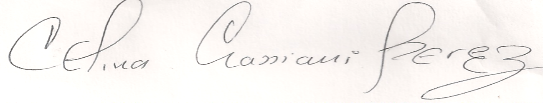 Celina Cassiani Berez